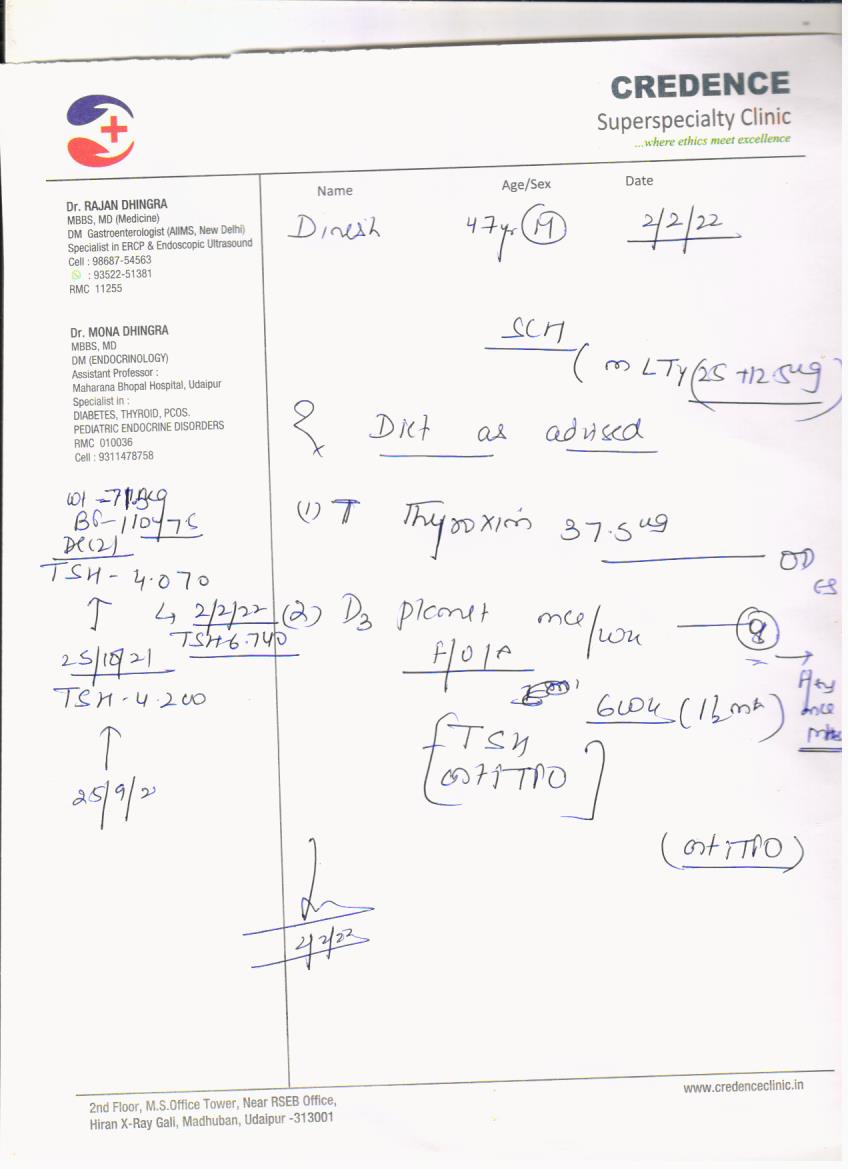 CREDENCE
Superspecialty Clinic
...where ethics meet excellence
Dr. RAJAN DHINGRA
MBBS, MD (Medicine)
DM Gastroenterologist (AIIMS, New Delhi)
Specialist in ERCP & Endoscopic Ultrasound
Cell : 98687-54563
: 93522-51381
RMC 11255
Dr. MONA DHINGRA
MBBS, MD
DM (ENDOCRINOLOGY)
Assistant Professor :
Maharana Bhopal Hospital, Udaipur
Specialist in :
DIABETES, THYROID, PCOS.
PEDIATRIC ENDOCRINE DISORDERS
RMC 010036
Cell : 9311478758
BP-110/75
TSH - 4.070
↑ ↳ 2/2/22
TSH 6.740
25/10/21
TSH - 4.200
↑
25/9/2
Name Age/Sex Date
Dinesh 47yr (M) 2/2/22
SCH
( LTy (25 + 12.5ug)
Rx Diet as advised
(1) T Thyroxin 37.5 ug
OD
ES
(2) D3 Planet once/wk
8
→
once
F/O/A
6wk (1½ mth)
[TSH
antiTPO]
(antiTPO)
2/2/22
www.credenceclinic.in
2nd Floor, M.S.Office Tower, Near RSEB Office,
Hiran X-Ray Gali, Madhuban, Udaipur -313001